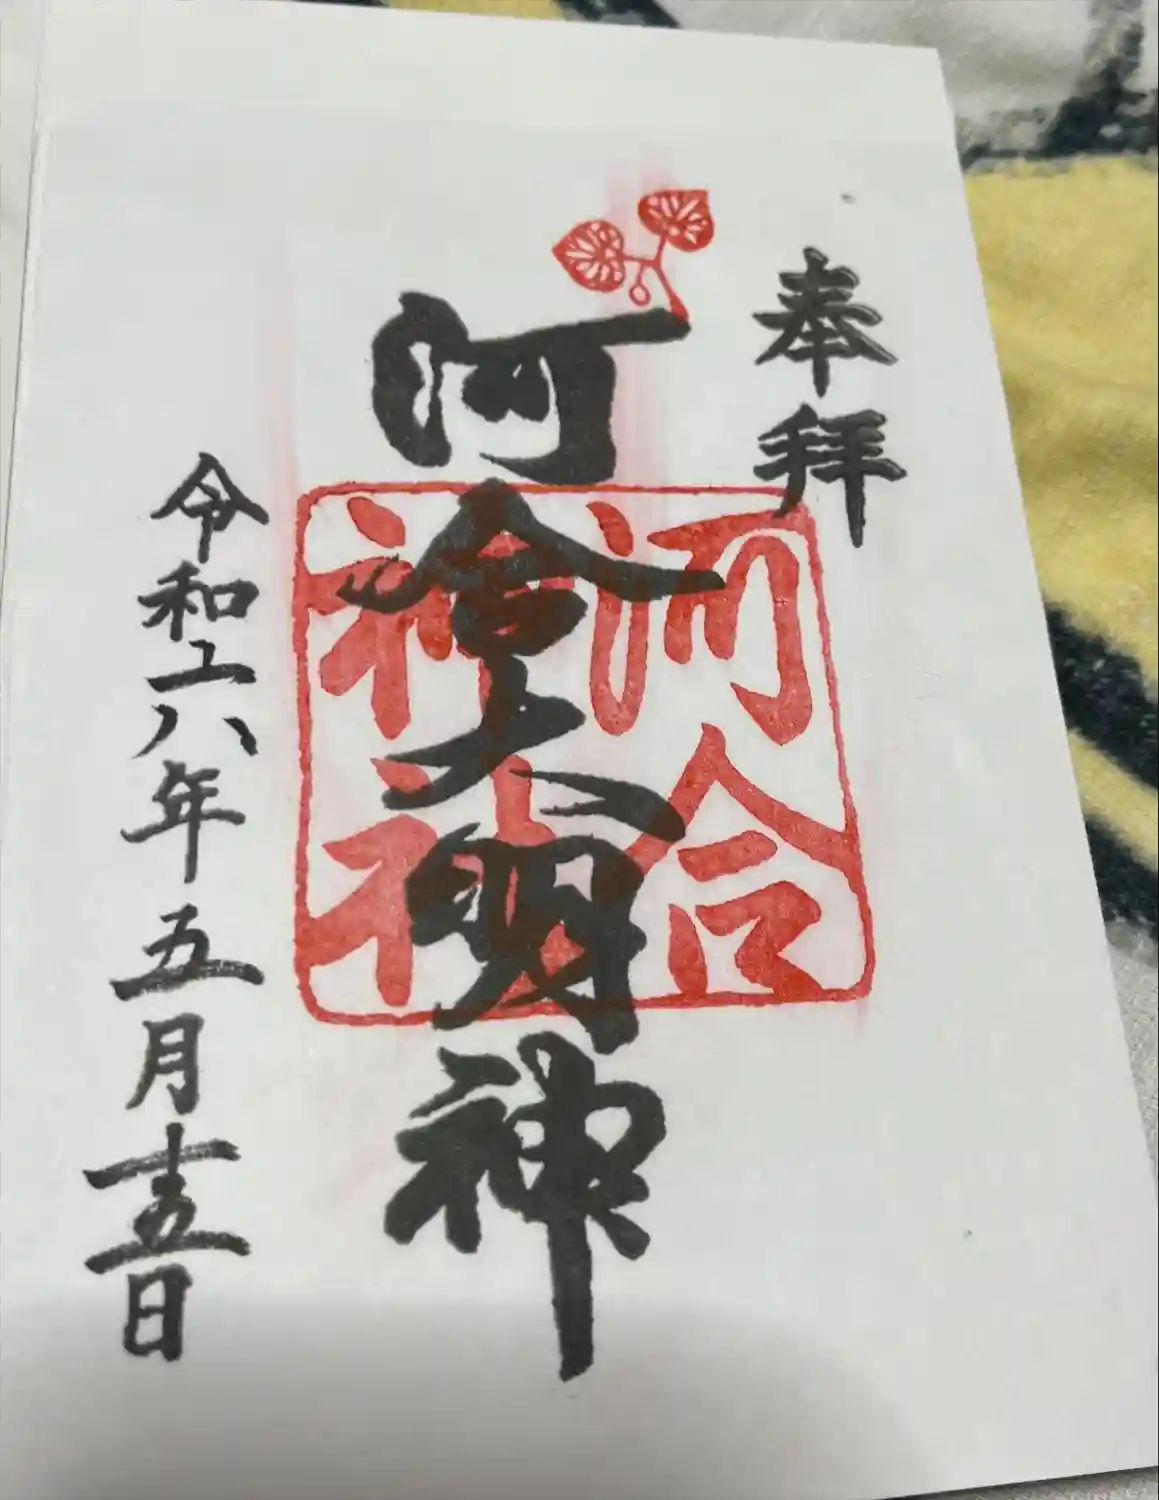 奉拝
河合大明神
河合
神社
令和六年五月十五日